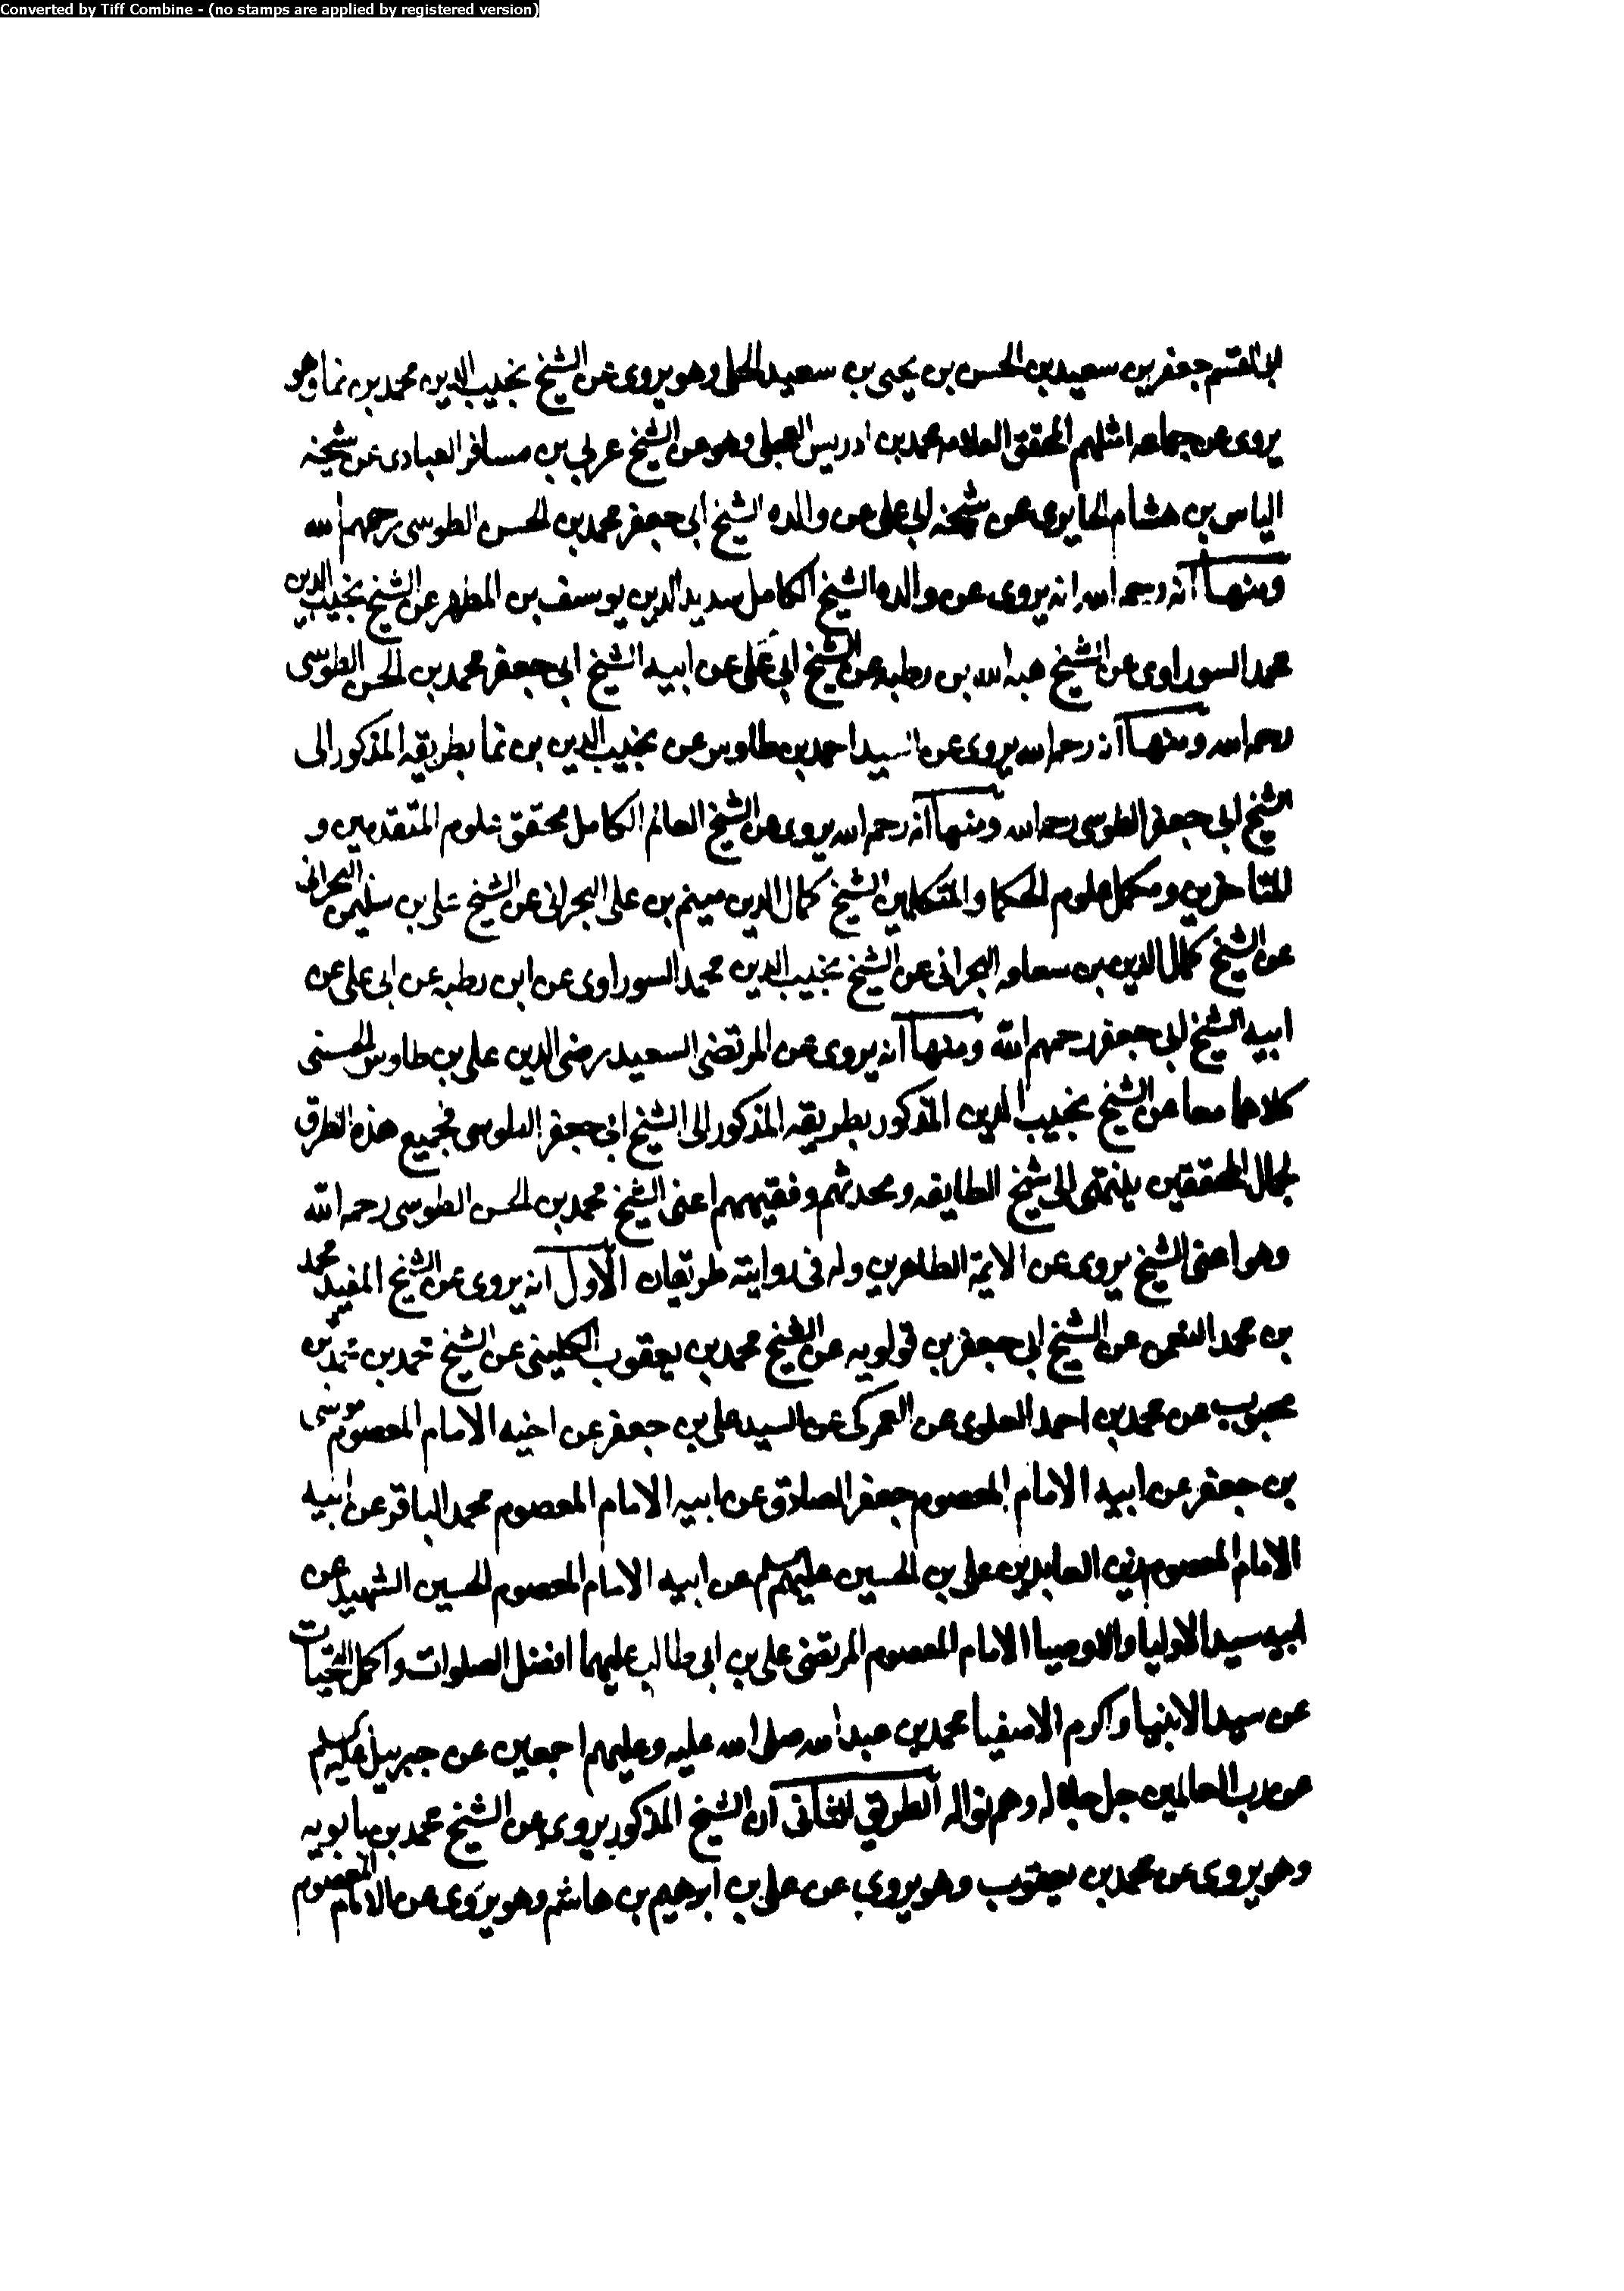 Converted by Tiff Combine - (no stamps are applied by registered version)
ابو القسم جعفر بن سعيد بن الحسن بن يحيى بن سعيد الحلى وهو يروى عن الشيخ نجيب الدين محمد بن نما وهو
يروى عن جماعه امثلهم المحقق العلامه محمد بن ادريس العجلى وهو عن الشيخ عربى بن مسافر العبادى عن شيخه
الياس بن هشام الحايرى عن شيخه ابى على عن والده الشيخ ابى جعفر محمد بن الحسن الطوسى رحمهم الله
ومنها انه رحمه الله انه يروى عن والده الشيخ الكامل سديد الدين يوسف بن المطهر عن الشيخ نجيب الدين
محمد السوراوى عن الشيخ هبه الله بن رطبه عن الشيخ ابى على عن ابيه الشيخ ابى جعفر محمد بن الحسن الطوسى
رحمه الله ومنها انه رحمه الله يروى عن السيد احمد بن طاوس عن نجيب الدين بن نما بطريقه المذكور الى
الشيخ ابى جعفر الطوسى رحمه الله ومنها انه رحمه الله يروى عن الشيخ العالم الكامل محقق علوم المتقدمين و
المتاخرين ومكمل علوم الحكما والمتكلمين الشيخ كمال الدين ميثم بن على البحرانى عن الشيخ على بن سليمن البحرانى
عن الشيخ كمال الدين بن سعاده البحرانى عن الشيخ نجيب الدين محمد السوراوى عن ابن رطبه عن ابى على عن
ابيه الشيخ ابى جعفر رحمهم الله ومنها انه يروى عن المرتضى السعيد رضى الدين على بن طاوس الحسنى
كلاهما معا عن الشيخ نجيب الدين المذكور بطريقه المذكور الى الشيخ ابى جعفر الطوسى فجميع هذه الطرق
لجمال المحققين ينتهى الى شيخ الطايفه ومحدثهم وفقيههم اعنى الشيخ محمد بن الحسن الطوسى رحمه الله
وهو اعنى الشيخ يروى عن الائمة الطاهرين وله فى روايته طريقان الاول انه يروى عن الشيخ المفيد محمد
بن محمد النعمن عن الشيخ ابى جعفر بن قولويه عن الشيخ محمد بن يعقوب الكلينى عن الشيخ محمد بن محمد بن
محبوب عن محمد بن احمد العلوى عن العمركى عن السيد على بن جعفر عن اخيه الامام المعصوم موسى
بن جعفر عن ابيه الامام المعصوم جعفر الصادق عن ابيه الامام المعصوم محمد الباقر عن ابيه
الامام المعصوم زين العابدين على بن الحسين عليهم السلم عن ابيه الامام المعصوم الحسين الشهيد عن
ابيه سيد الاوليا والاوصيا الامام المعصوم المرتضى على بن ابى طالب عليهما افضل الصلوات واكمل التحيات
عن سيد الانبيا واكرم الاصفيا محمد بن عبد الله صلى الله عليه وعليهم اجمعين عن جبرييل عليه السلم
عن رب العالمين جل جلاله وعم نواله الطريق الثانى ان الشيخ المذكور يروى عن الشيخ محمد بن بابويه
وهو يروى عن محمد بن يعقوب وهو يروى عن على بن ابرهيم بن هاشم وهو يروى عن الامام المعصوم